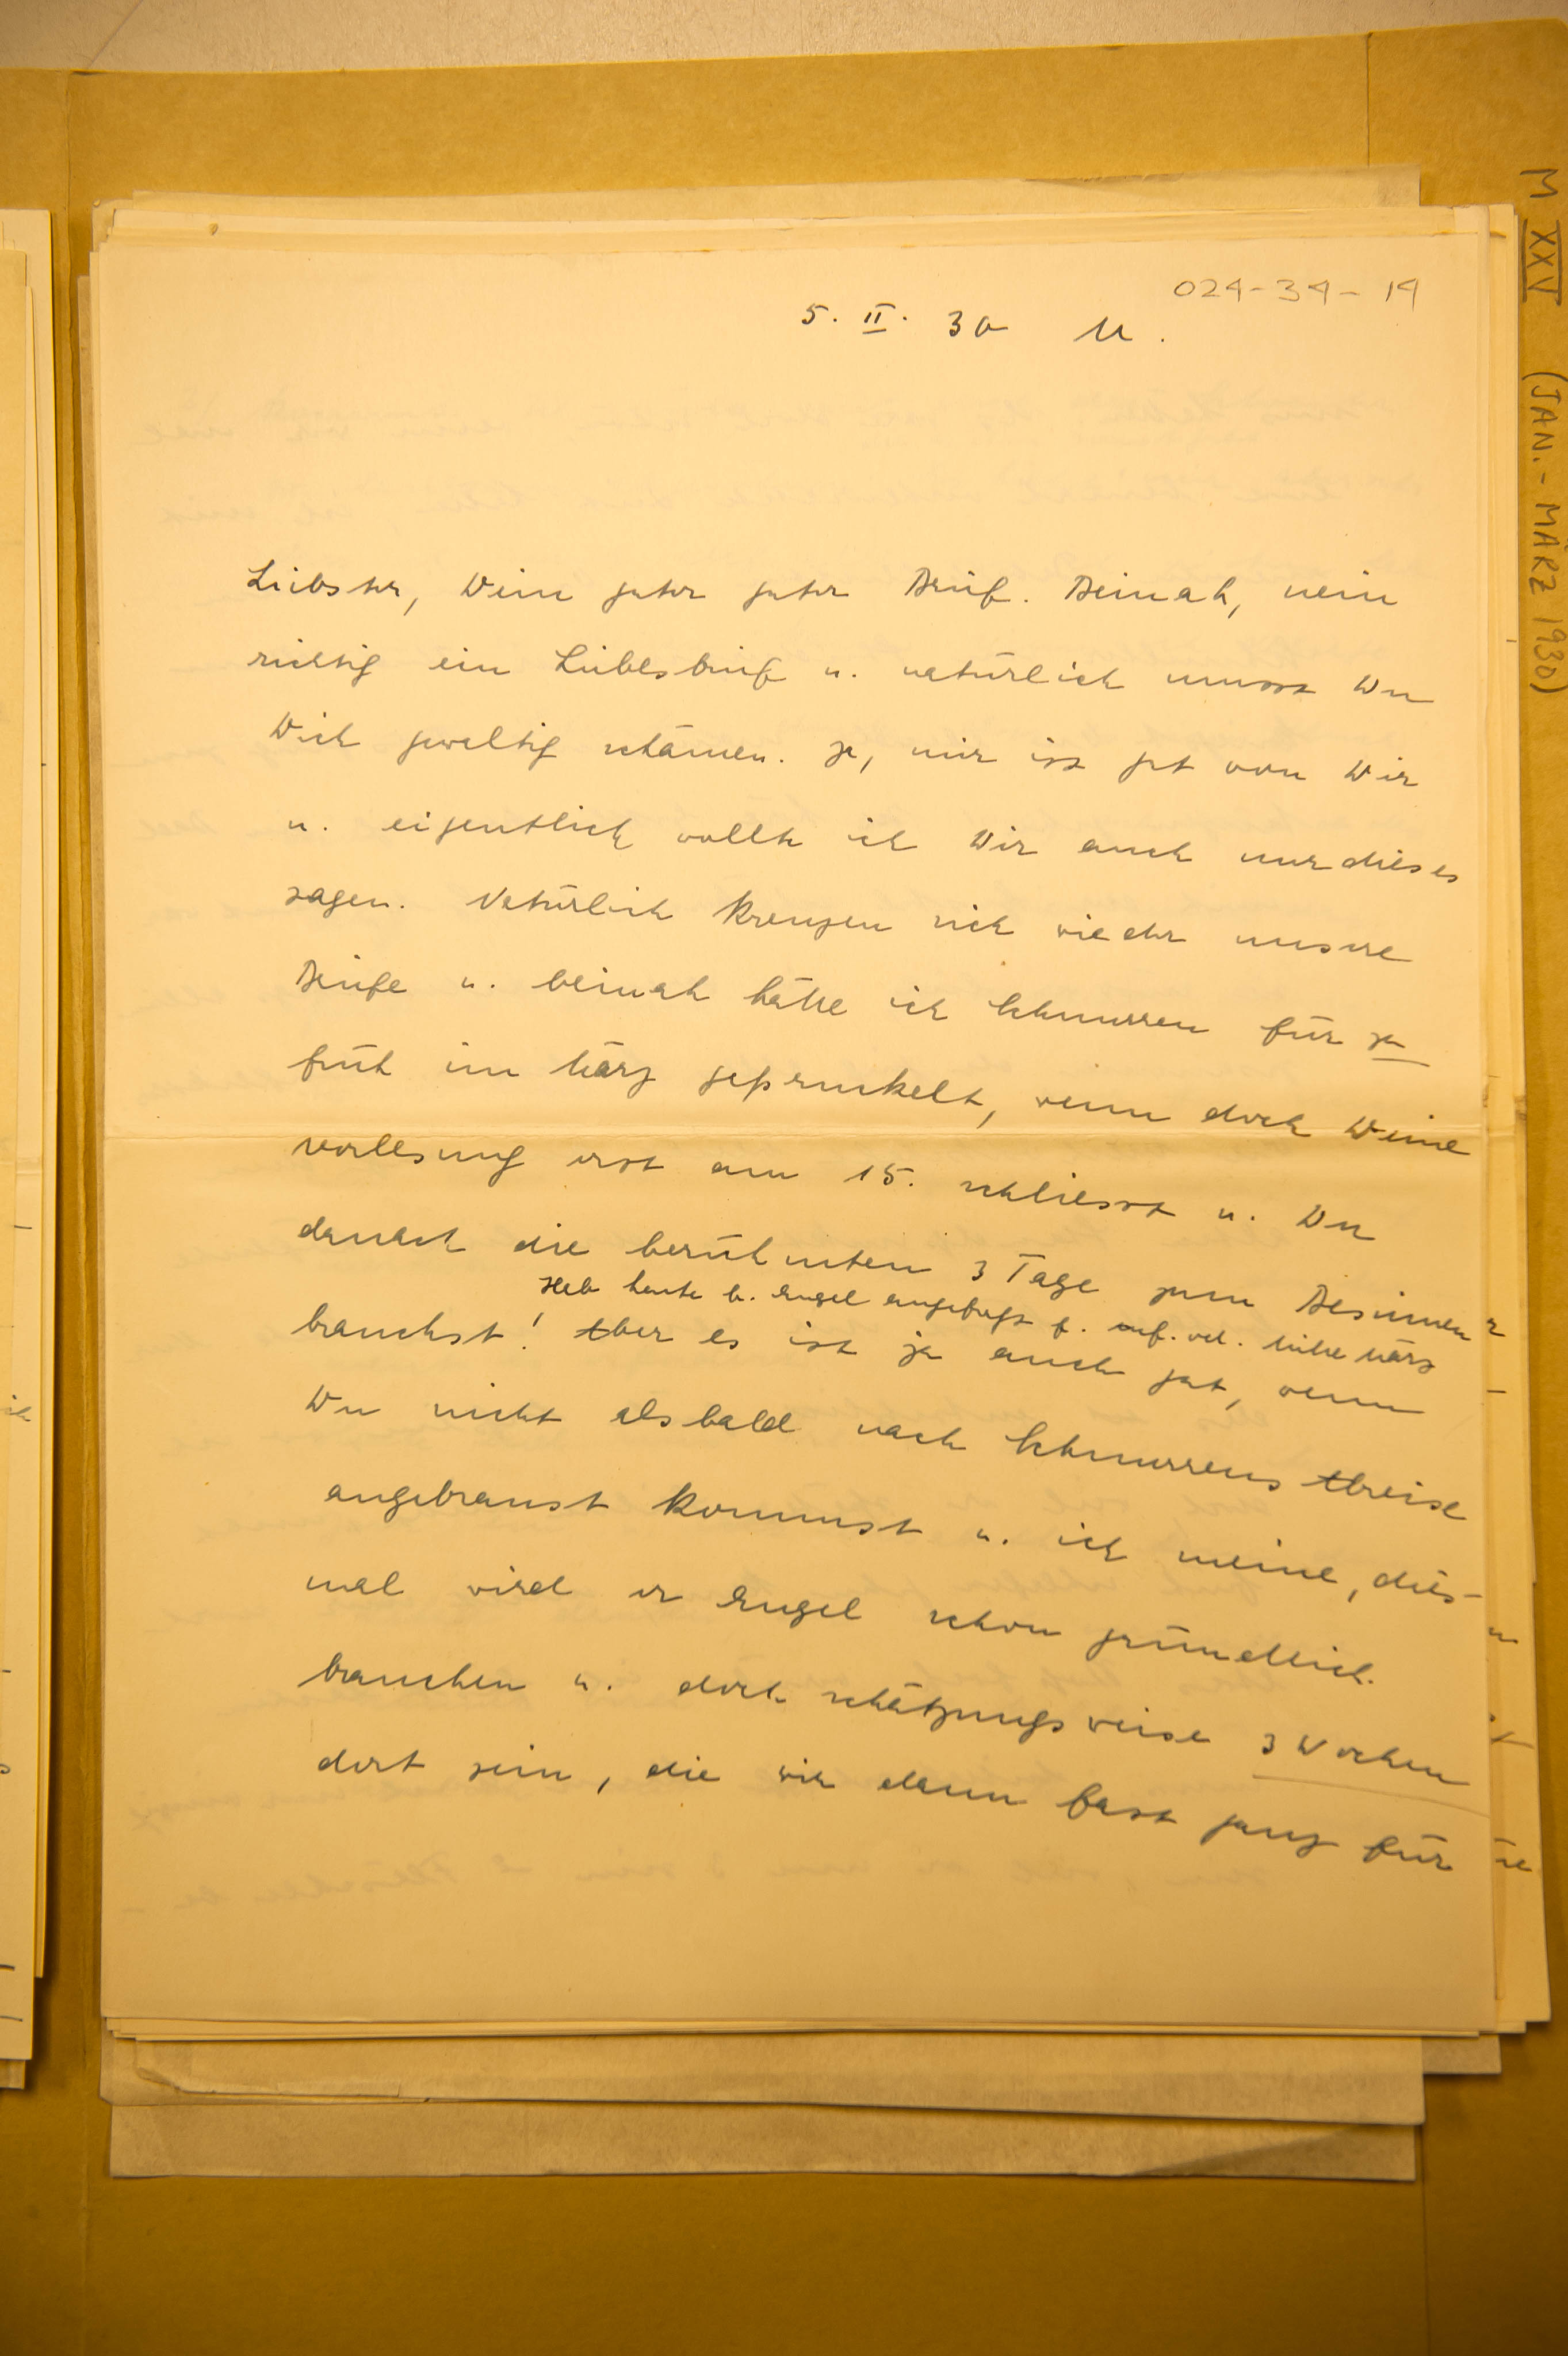 024-34-19
5. II. 30 M.
Liebster, Dein guter guter Brief. Beinah, nein
richtig ein Liebesbrief u. natürlich musst Du
Dich gewaltig schämen. Ja, mir ist gut von Dir
u. eigentlich wollte ich Dir auch nur dieses
sagen. Natürlich kreuzen sich wieder unsere
Briefe u. beinah hätte ich Schnurren für zu
früh im März geprunkelt, wenn doch Deine
Vorlesung erst am 15. schliesst u. Du
danach die berühmten 3 Tage zum Besinnen
Hab heute b. Engel angefragt f. Anf. od. Mitte März
brauchst! Aber es ist ja auch gut, wenn
Du nicht alsbald nach Schnurrens Abreise
angebraust kommst u. ich meine, dies-
mal wird er Engel schon gründlich
brauchen u. doch schätzungsweise 3 Wochen
dort sein, die wir dann fast ganz für
M XXV (JAN. - MÄRZ 1930)